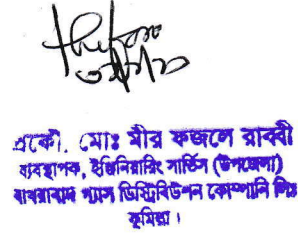 প্রকৌ. মোঃ মীর ফজলে রাব্বী
ব্যবস্থাপক, ইঞ্জিনিয়ারিং সার্ভিস (উপজেলা)
বাখরাবাদ গ্যাস ডিস্ট্রিবিউশন কোম্পানি লিঃ
কুমিল্লা।